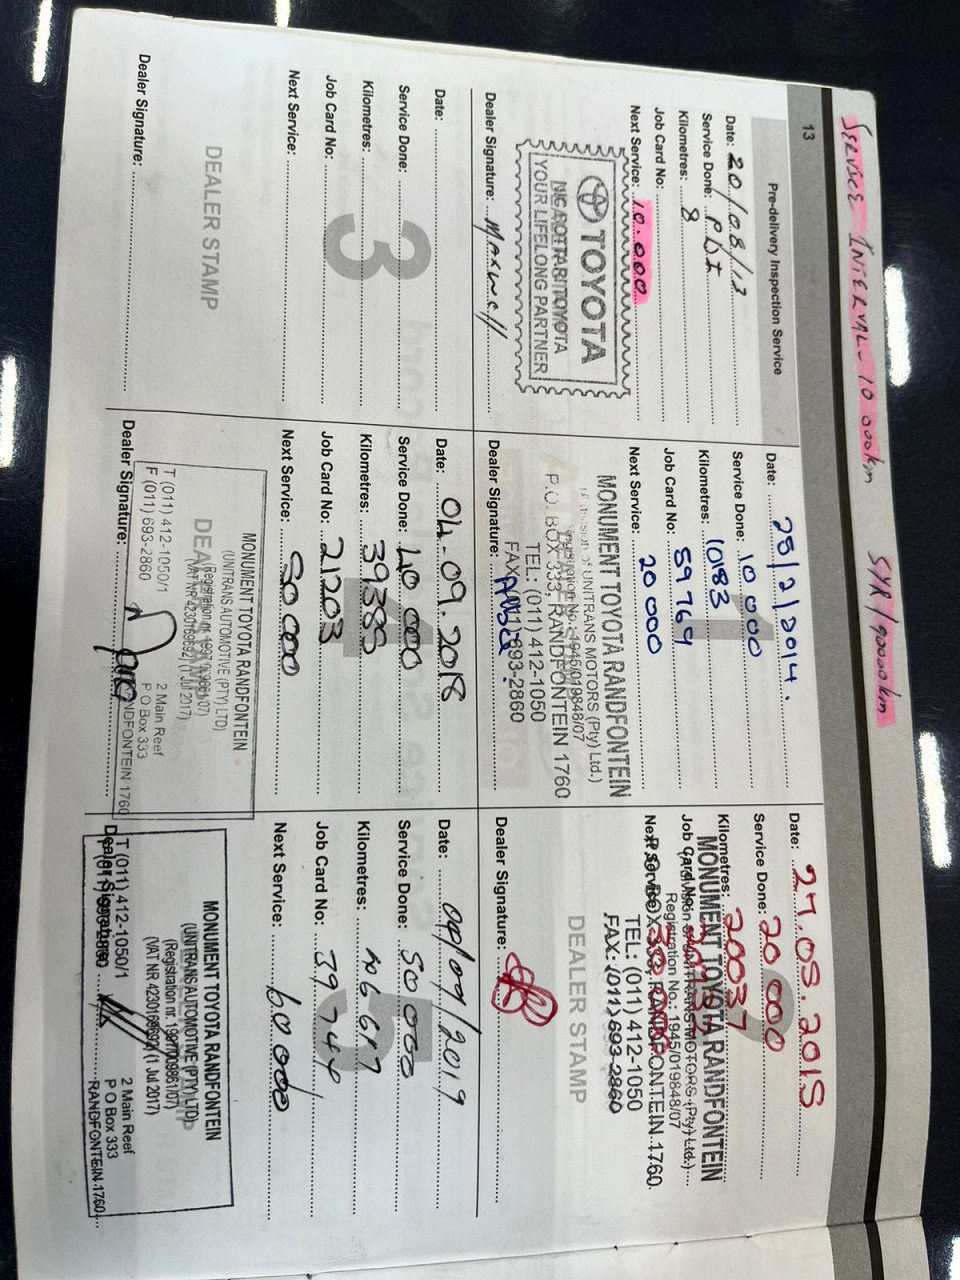 SERVICE INTERVAL - 10 000km 5YR/90000km
13
Pre-delivery Inspection Service
Date: 20/08/13
Service Done: P.D.I
Kilometres: 8
Job Card No:
Next Service: 10.000
TOYOTA
YOUR LIFELONG PARTNER
Dealer Signature: Maxwell
1
Date: 28/2/2014.
Service Done: 10 000
Kilometres: 10183
Job Card No: 59769
Next Service: 20 000
MONUMENT TOYOTA RANDFONTEIN
(A division of UNITRANS MOTORS (Pty) Ltd.)
Registration No.: 1945/019848/07
P.O. BOX 333, RANDFONTEIN 1760
TEL: (011) 412-1050
FAX: (011) 693-2860
Dealer Signature:
2
Date: 27.05.2015
Service Done: 20 000
Kilometres: 20037
Job Card No:
Next Service:
MONUMENT TOYOTA RANDFONTEIN
(A division of UNITRANS MOTORS (Pty) Ltd.)
Registration No. 1945/019848/07
P.O. BOX 333, RANDFONTEIN 1760
TEL: (011) 412-1050
FAX: (011) 693-2860
DEALER STAMP
Dealer Signature:
3
Date:
Service Done:
Kilometres:
Job Card No:
Next Service:
DEALER STAMP
Dealer Signature:
4
Date: 04.09.2018
Service Done: 40 000
Kilometres: 39389
Job Card No: 21203
Next Service: 50 000
MONUMENT TOYOTA RANDFONTEIN
(UNITRANS AUTOMOTIVE (PTY) LTD)
(Registration nr. 1997/009861/07)
(VAT NR 4230169692) (1 Jul 2017)
T (011) 412-1050/1 2 Main Reef
F (011) 693-2860 P O Box 333
RANDFONTEIN 1760
Dealer Signature:
5
Date: 09/09/2019
Service Done: 50 000
Kilometres: 46647
Job Card No: 39744
Next Service: 60 000
MONUMENT TOYOTA RANDFONTEIN
(UNITRANS AUTOMOTIVE (PTY) LTD)
(Registration nr. 1997/009861/07)
(VAT NR 4230169692) (1 Jul 2017)
T (011) 412-1050/1 2 Main Reef
F (011) 693-2860 P O Box 333
RANDFONTEIN 1760
Dealer Signature: